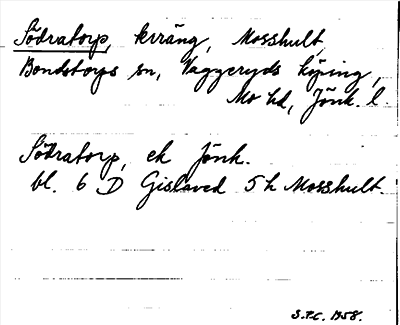 Södratorp, kvräng, Mosshult,
Bondstorps sn, Vaggeryds köping,
Mo hd, Jönk. l.
Södratorp, ek Jönk.
bl. 6 D Gislaved 5 h Mosshult.
S.P.C. 1958.